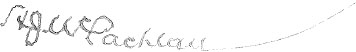 H J McLachlan